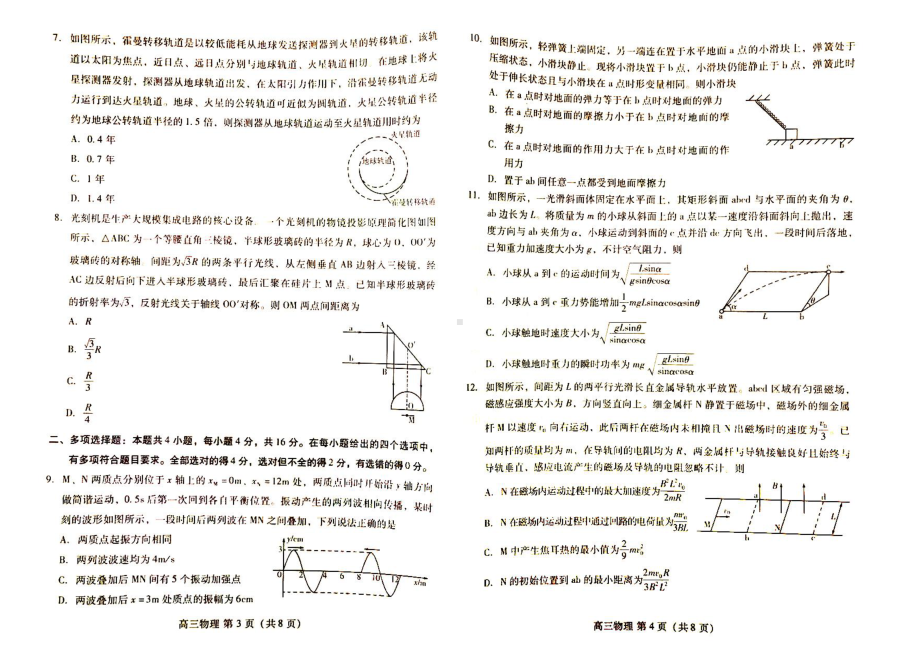 7. 如图所示，霍曼转移轨道是以较低能耗从地球发送探测器到火星的转移轨道，该轨
道以太阳为焦点，近日点、远日点分别与地球轨道、火星轨道相切。在地球上将火
星探测器发射，探测器从地球轨道出发，在太阳引力作用下，沿霍曼转移轨道无动
力运行到达火星轨道。地球、火星的公转轨道可近似为圆轨道，火星公转轨道半径
约为地球公转轨道半径的1.5倍，则探测器从地球轨道运动至火星轨道用时约为
A. 0.4年
B. 0.7年
C. 1年
D. 1.4年
火星轨道
地球轨道
霍曼转移轨道
8. 光刻机是生产大规模集成电路的核心设备。一个光刻机的物镜投影原理简化图如图
所示，△ABC为一个等腰直角三棱镜，半球形玻璃砖的半径为R，球心为O，OO′为
玻璃砖的对称轴。间距为√3R的两条平行光线，从左侧垂直AB边射入三棱镜，经
AC边反射后向下进入半球形玻璃砖，最后汇聚在硅片上M点。已知半球形玻璃砖
的折射率为√3，反射光线关于轴线OO′对称。则OM两点间距离为
A. R
B. √3/3 R
C. R/3
D. R/4
a
b
A
O′
B
C
O
M
二、多项选择题：本题共4小题，每小题4分，共16分。在每小题给出的四个选项中，
有多项符合题目要求。全部选对的得4分，选对但不全的得2分，有选错的得0分。
9. M、N两质点分别位于x轴上的xM=0m、xN=12m处，两质点同时开始沿y轴方向
做简谐运动，0.5s后第一次回到各自平衡位置。振动产生的两列波相向传播，某时
刻的波形如图所示，一段时间后两列波在MN之间叠加，下列说法正确的是
A. 两质点起振方向相同
B. 两列波波速均为4m/s
C. 两波叠加后MN间有5个振动加强点
D. 两波叠加后x=3m处质点的振幅为6cm
y/cm
3
0 2 4 6 8 10 12 x/m
高三物理 第3页（共8页）
10. 如图所示，轻弹簧上端固定，另一端连在置于水平地面a点的小滑块上，弹簧处于
压缩状态，小滑块静止。现将小滑块置于b点，小滑块仍能静止于b点，弹簧此时
处于伸长状态且与小滑块在a点时形变量相同。则小滑块
A. 在a点时对地面的弹力等于在b点时对地面的弹力
B. 在a点时对地面的摩擦力小于在b点时对地面的摩
擦力
C. 在a点时对地面的作用力大于在b点时对地面的作
用力
D. 置于ab间任意一点都受到地面摩擦力
a b
11. 如图所示，一光滑斜面体固定在水平面上，其矩形斜面abcd与水平面的夹角为θ，
ab边长为L。将质量为m的小球从斜面上的a点以某一速度沿斜面斜向上抛出，速
度方向与ab夹角为α，小球运动到斜面的c点并沿dc方向飞出，一段时间后落地，
已知重力加速度大小为g，不计空气阻力，则
A. 小球从a到c的运动时间为√(Lsinα/gsinθcosα)
B. 小球从a到c重力势能增加1/2 mgLsinαcosαsinθ
C. 小球触地时速度大小为√(gLsinθ/sinαcosα)
D. 小球触地时重力的瞬时功率为mg√(gLsinθ/sinαcosα)
d
c
α
θ
a
L
b
12. 如图所示，间距为L的两平行光滑长直金属导轨水平放置。abcd区域有匀强磁场，
磁感应强度大小为B，方向竖直向上。细金属杆N静置于磁场中，磁场外的细金属
杆M以速度v₀向右运动，此后两杆在磁场内未相撞且N出磁场时的速度为v₀/3。已
知两杆的质量均为m，在导轨间的电阻均为R，两金属杆与导轨接触良好且始终与
导轨垂直，感应电流产生的磁场及导轨的电阻忽略不计。则
A. N在磁场内运动过程中的最大加速度为B²L²v₀/2mR
B. N在磁场内运动过程中通过回路的电荷量为mv₀/3BL
C. M中产生焦耳热的最小值为2/9 mv₀²
D. N的初始位置到ab的最小距离为2mv₀R/3B²L²
a
B
d
v₀
L
M
N
b
c
高三物理 第4页（共8页）